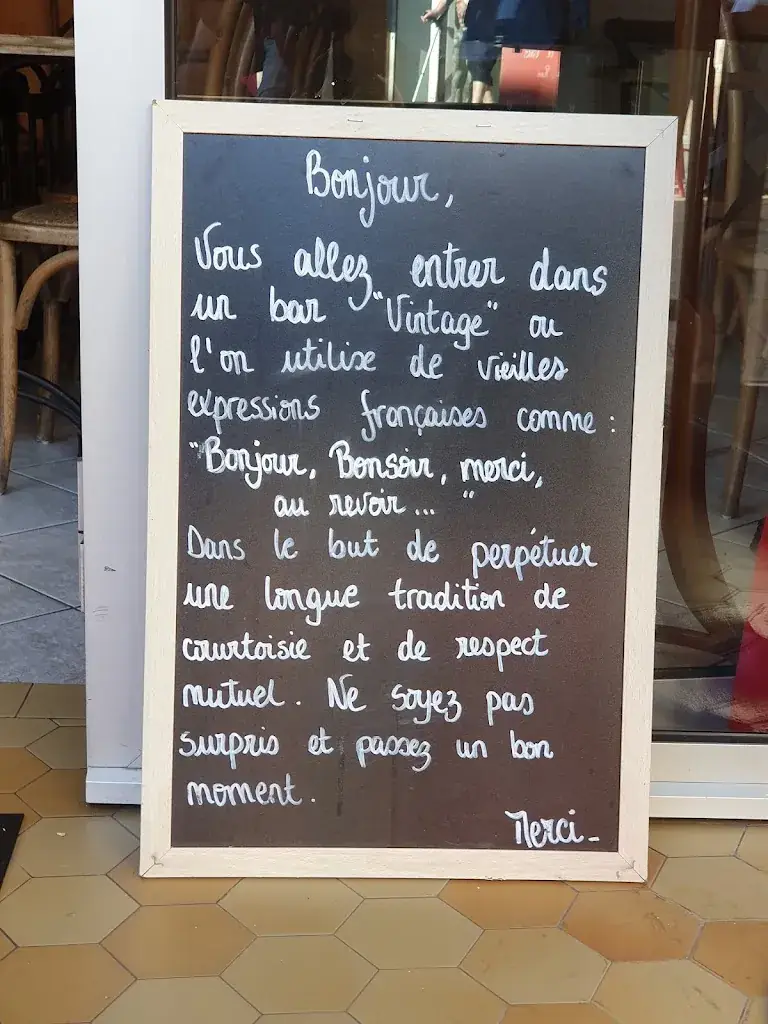 Bonjour,
Vous allez entrer dans
un bar "Vintage" ou
l'on utilise de vieilles
expressions françaises comme :
"Bonjour, Bonsoir, merci,
au revoir... "
Dans le but de perpétuer
une longue tradition de
courtoisie et de respect
mutuel. Ne soyez pas
surpris et passez un bon
moment.
Merci-